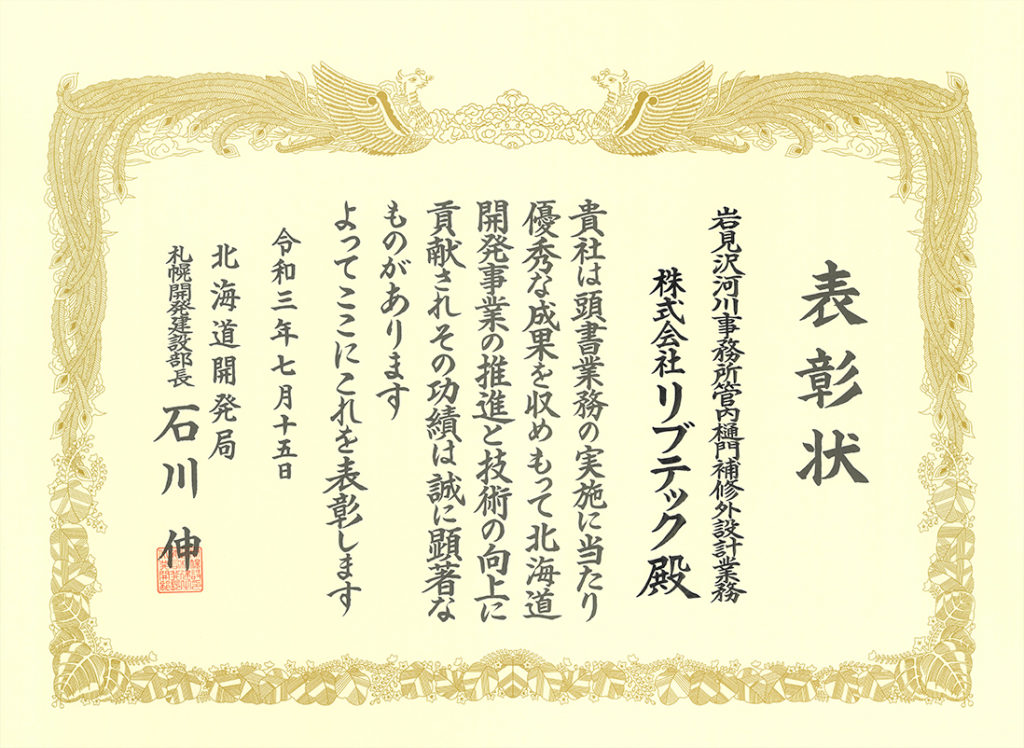 表彰状
岩見沢河川事務所管内樋門補修外設計業務
株式会社リブテック殿
貴社は頭書業務の実施に当たり
優秀な成果を収めもって北海道
開発事業の推進と技術の向上に
貢献されその功績は誠に顕著な
ものがあります
よってここにこれを表彰します
令和三年七月十五日
北海道開発局
札幌開発建設部長 石川 伸